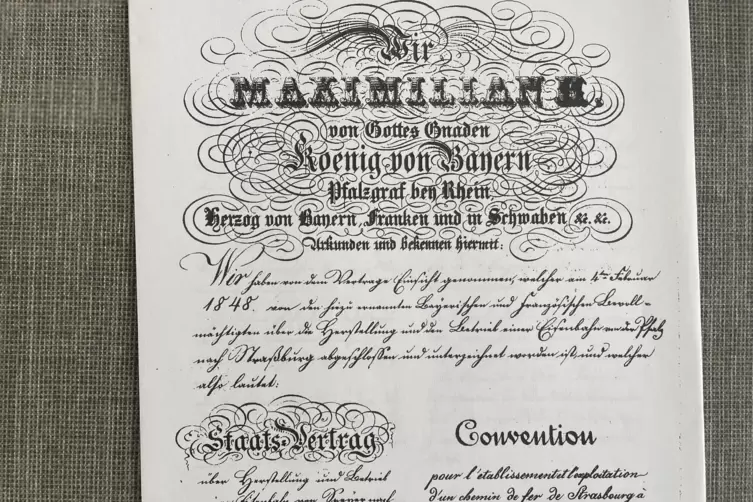 Wir
MAXIMILIAN II.
von Gottes Gnaden
Koenig von Bayern
Pfalzgraf bey Rhein
Herzog von Bayern, Franken und in Schwaben &. &.
Urkunden und bekennen hiermit:
Wir haben von dem Vertrage Einsicht genommen, welcher am 4ten Februar
1848. von den hiezu ernannten Bayerischen und Französischen Bevoll-
mächtigten über die Herstellung und den Betrieb einer Eisenbahn von der Pfalz
nach Straßburg abgeschlossen und unterzeichnet worden ist, und welcher
also lautet:
Staats-Vertrag
über Herstellung und Betrieb
Eisenbahn von Speyer nach
Convention
pour l'établissement et l'exploitation
d'un chemin de fer de Strasbourg à